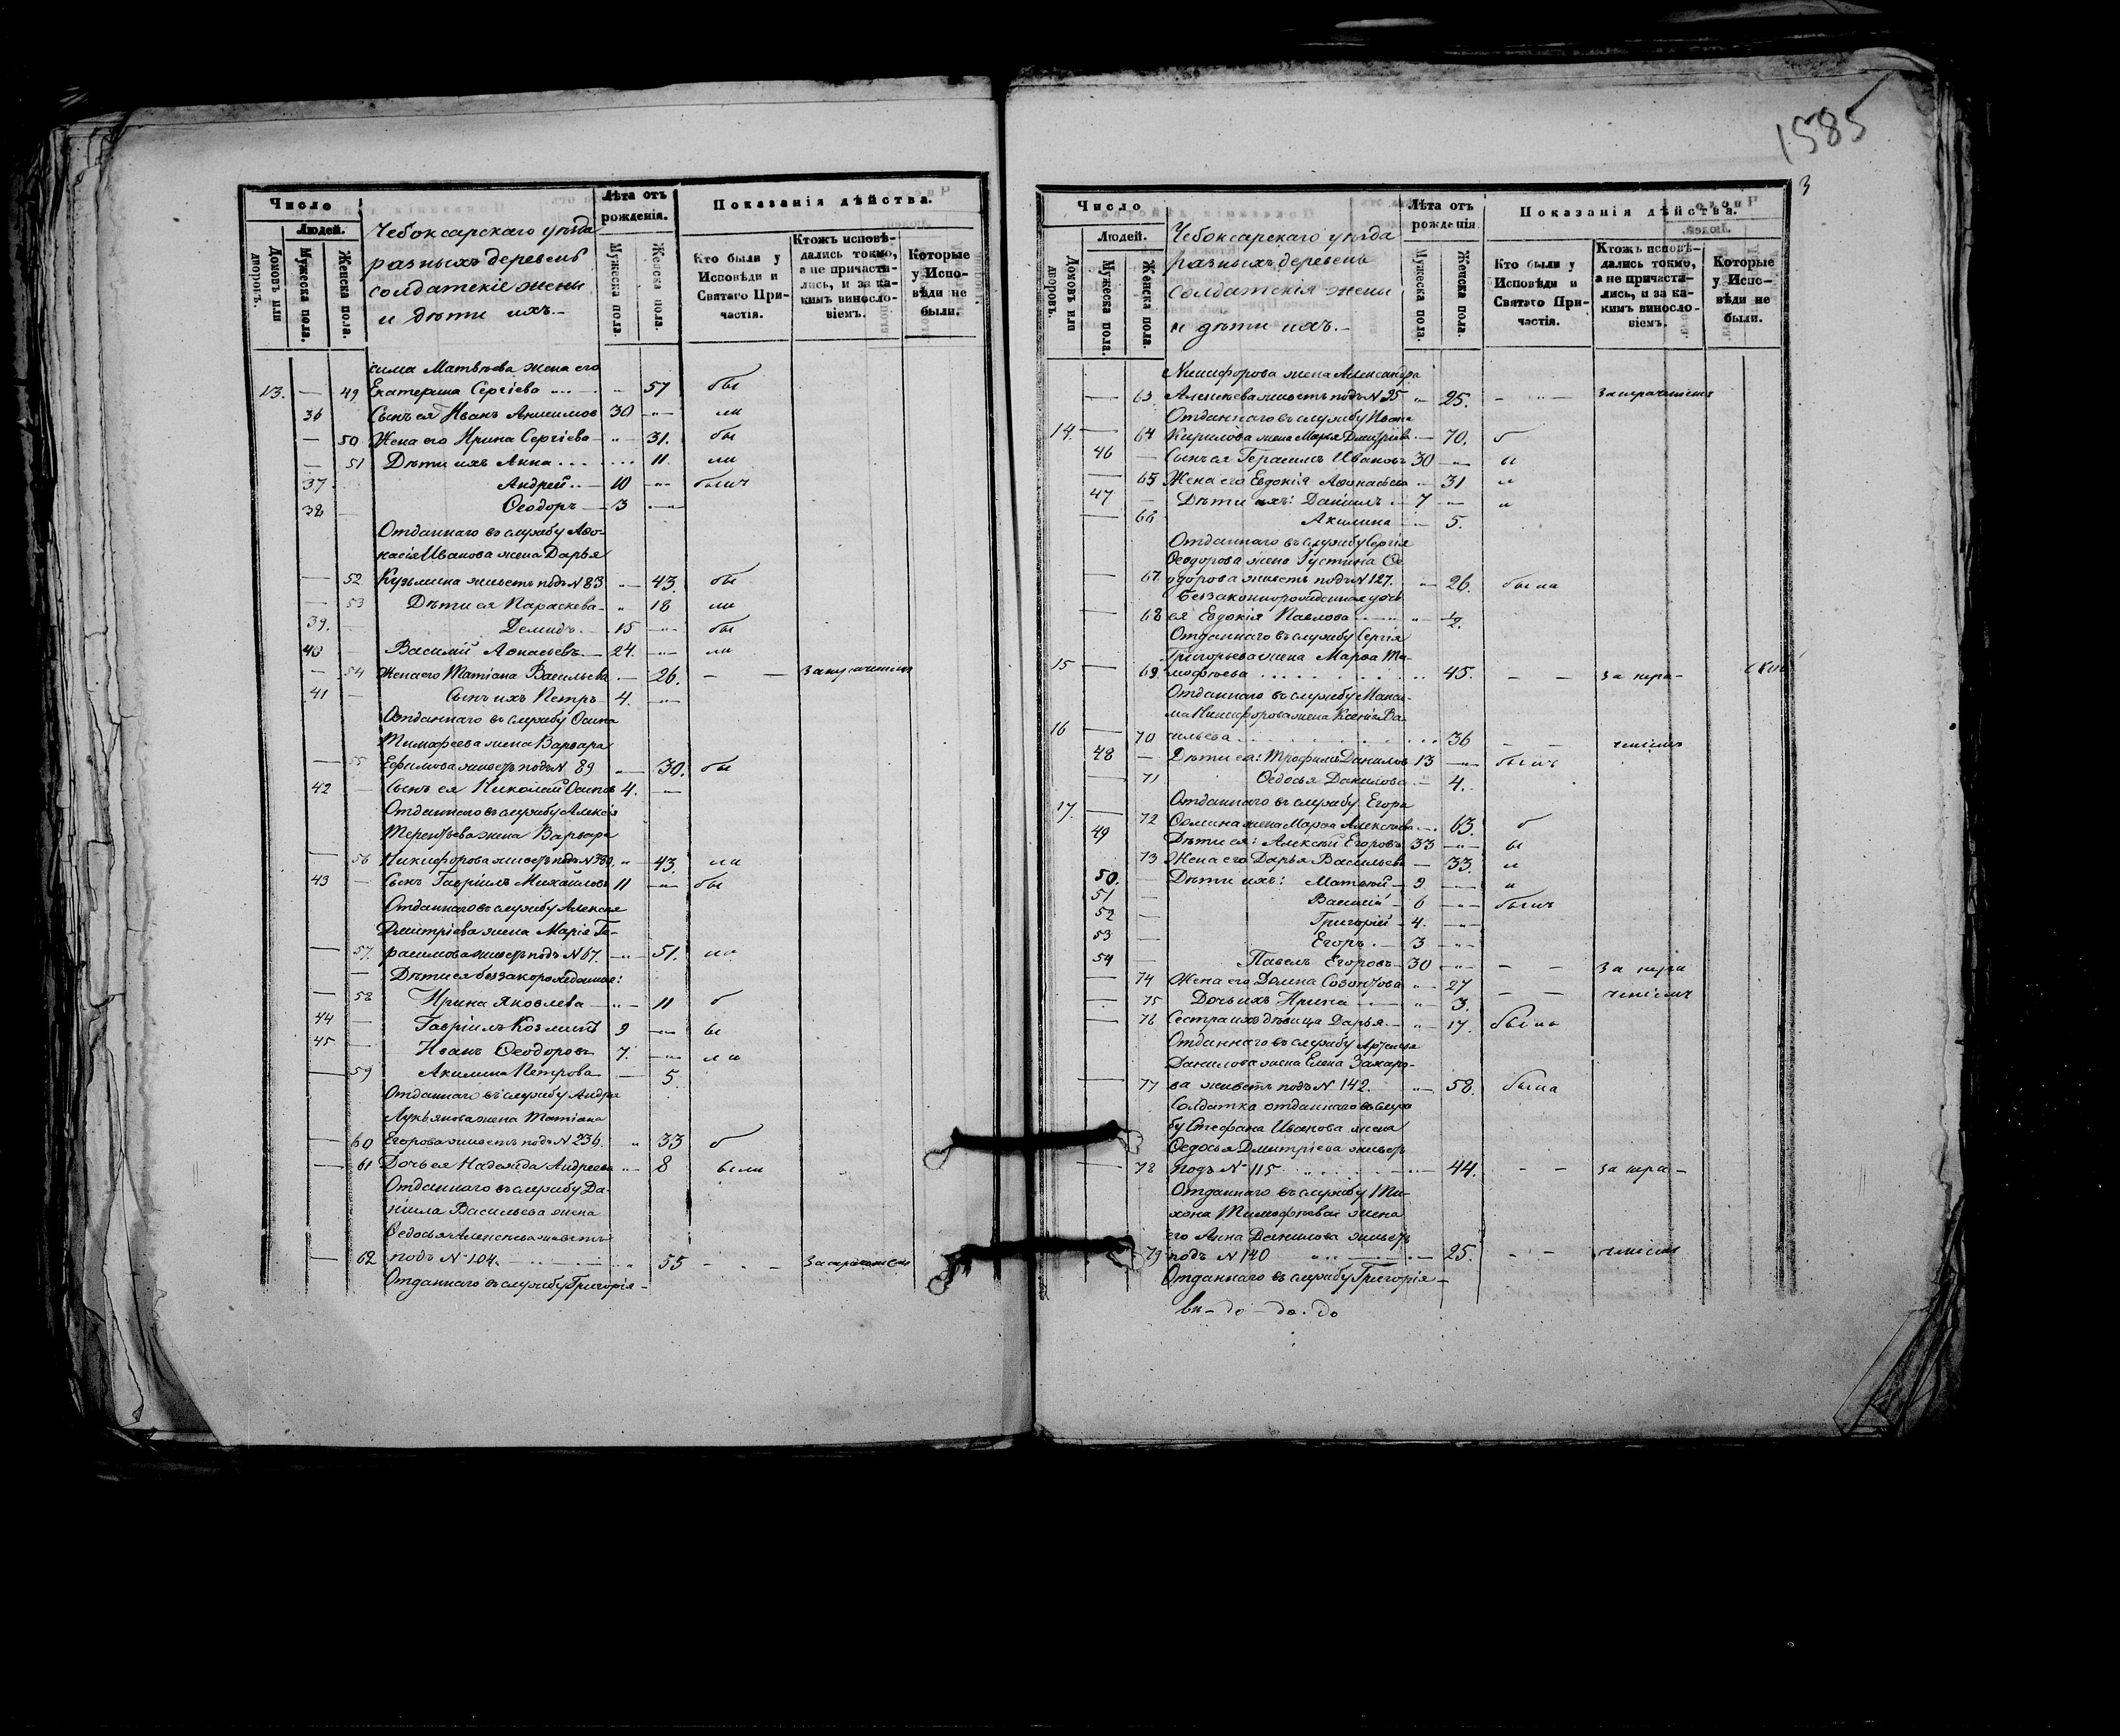 1585
3
Число
Людей.
Домовъ или дворовъ.
Мужеска пола.
Женска пола.
Чебоксарскаго уѣзда
разныхъ деревень
солдатскіе жены
и дѣти ихъ.-
Лѣта отъ рожденія.
Мужеска пола.
Женска пола.
Показанія дѣйства.
Кто были у Исповѣди и Святаго Причастія.
Ктожъ исповѣдались токмо, а не причастились, и за какимъ винословіемъ.
Которые у Исповѣди не были.
сима Матвѣева жена его
13. — 49 Екатерина Сергіева " 57 бы
36 Сынъ ея Иванъ Анисимов 30 — ли
— 50 Жена его Ирина Сергіева " 31. бы
— 51 Дѣти ихъ Анна . . . 11 ли
37 Андрей 10 — былъ
38 Ѳеодоръ 3 —
Отданнаго въ службу Аѳо-
насія Иванова жена Дарья
— 52 Кузьмина живетъ подъ N 83 " 43. бы
— 53 Дѣти ея Параскева " 18 ли
39. Демидъ 15 — бы
40 — Василій Аѳонасьевъ 24. — ли
— 54 Жена его Татіана Васильева — 26. — —
41 — Сынъ ихъ Петръ 4. —
Отданнаго въ службу Осипа
Тимофеева жена Варвара
— 55 Ефимова живетъ подъ N 89 " 30. бы
42 — Сынъ ея Николай Осипов 4. —
Отданнаго въ службу Алексѣя
Терентьева жена Варвара
— 56 Никифорова живетъ подъ N " 43. ли
43 — Сынъ Гавріилъ Михайловъ 11 — бы
Отданнаго въ службу Алексея
Дмитріева жена Марія Ге-
— 57. расимова живетъ подъ N 67. " 51. ли
— Дѣти ея беззакорожденные:
— 58 Ирина Яковлева " 11 б
44 — Гавріилъ Козминъ 9 — ы
45 — Иванъ Ѳеодоровъ 7. — ли
— 59 Акилина Петрова — 5.
Отданнаго въ службу Андрея
Лукьянова жена Татіана
— 60 Егорова живетъ подъ N 236. " 33 б
— 61 Дочь ея Надежда Андреева " 8 ыли
Отданнаго въ службу Да-
ніила Васильева жена
Ѳедосья Алексѣева живетъ
— 62 подъ N 104. " 55 — — —
Отданнаго въ службу Григорія —
Число
Людей.
Домовъ или дворовъ.
Мужеска пола.
Женска пола.
Чебоксарскаго уѣзда
разныхъ деревень
солдатскія жены
и дѣти ихъ.-
Лѣта отъ рожденія
Мужеска пола.
Женска пола.
Показанія дѣйства.
Кто были у Исповѣди и Святаго Причастія.
Ктожъ исповѣдались токмо, а не причастились, и за какимъ винословіемъ.
Которые у Исповѣди не были.
Никифорова жена Александра
— 63 Алексѣева живетъ подъ N 95 " 25. — —
Отданнаго въ службу Ивана
14. — 64 Кирилова жена Марья Дмитріева — 70. б
46 — Сынъ ея Герасимъ Ивановъ 30 — ы
— 65 Жена его Евдокія Аѳонасьева " 31 л
47 — Дѣти ихъ: Даніилъ 7 — и
— 66 Акилина — 5.
Отданнаго въ службу Сергія
Ѳеодорова жена Густина Ѳе
— 67 одорова живетъ подъ N 127. " 26. была
Беззаконнорожденная дочь
— 68 ея Евдокія Павлова " 1/2.
Отданнаго въ службу Сергія
15 — Григорьева жена Марѳа Ти-
69. мофѣева . . . 45. — — за нера-
Отданнаго въ службу Макси-
ма Никифорова жена Ксенія Ва-
16 — 70 сильева . . . 36 — — ченіемъ
48 — Дѣти ея: Трофимъ Данилов 13 — былъ
— 71 Ѳедосья Данилова — 4.
Отданнаго въ службу Егора
17. — 72 Ѳомина жена Марѳа Алексѣева — 63. б
49 Дѣти ея: Алексѣй Егоровъ 33 — ы
73 Жена его Дарья Васильева — 33. л
50. — Дѣти ихъ: Матвей 9 — и
51 — Василій 6 — былъ
52 — Григорій 4. —
53 — Егоръ 3 —
54 — Павелъ Егоровъ 30 — — — За нера
— 74 Жена его Домна Созонтова " 27 — — ченіемъ
— 75 Дочь ихъ Ирина " 3.
— 76 Сестра ихъ дѣвица Дарья " 17. была
Отданнаго въ службу Артемья
Данилова жена Елена Захаро-
— 77 ва живетъ подъ N 142. — 58. была
Солдатка отданнаго въ служ
бу Стефана Иванова жена
Ѳедосья Дмитріева живетъ
— 78 подъ N 115 — 44. — — за нера-
Отданнаго въ службу Ти-
хона Тимофѣева жена
его Анна Данилова живетъ
79 подъ N 140 — 25. — — ченіем
Отданнаго въ службу Григорія —